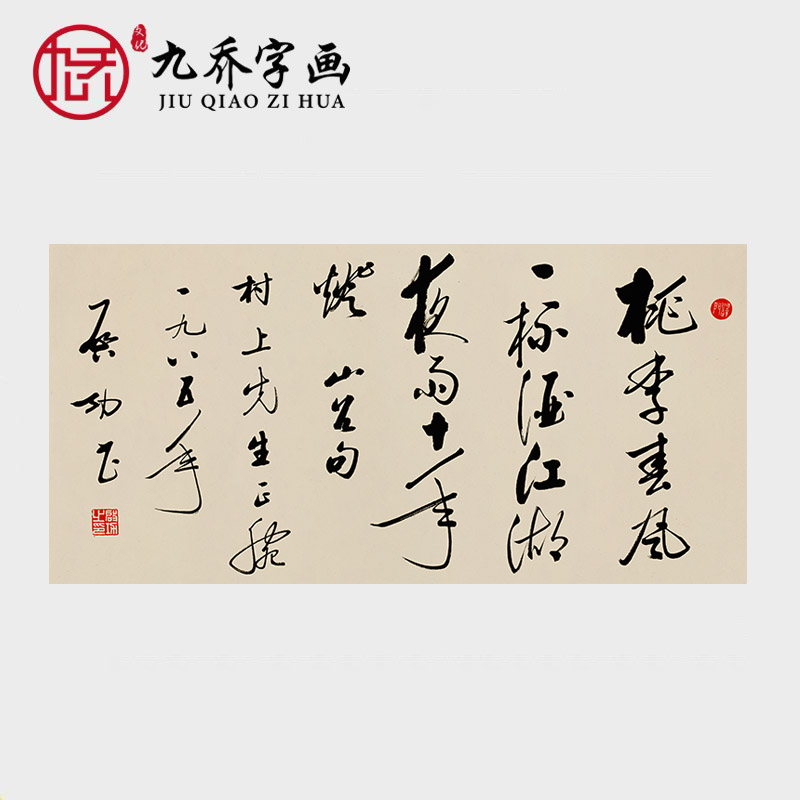 九乔字画
JIU QIAO ZI HUA
桃李春风
一杯酒江湖
夜雨十年
燈 山谷句
村上先生正腕
一九八五年
启功书